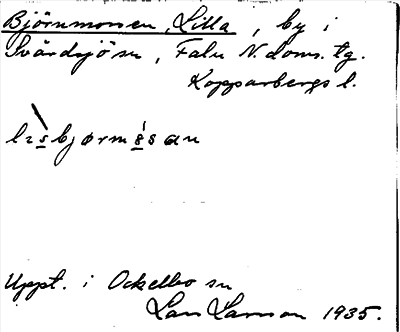 Björnmossen, Lilla, by i
Svärdsjö sn, Falu N. doms. tg.
Kopparbergs l.
Uppt. i Ockelbo sn
Lars Larsson 1935.